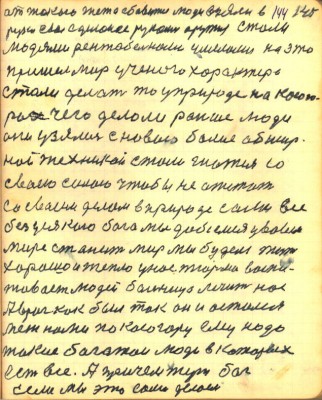 от такого что сбавит люди взяли в 144 340
руки свое одно все руками другие стали
людями рентабельными умными на это
пришел мир ученого характера
стали делать то природе на косого-
рах чего делали раньше люди
они узялися новаю более обшир-
ной техникой стали гнатся со
своею силою чтобы не отстат
со своим делом в природе сами все
без всякого бога мы добьемся уровня
мире станет мир мы будем жит
хорошо и тепло у нас тюрма воспи-
товает людей больница лечит нас
А враг как был так он и остался
меж нами по косогору ему надо
такие богатые люди в которых
ест все. А причем тут бог
если мы это сами делаем